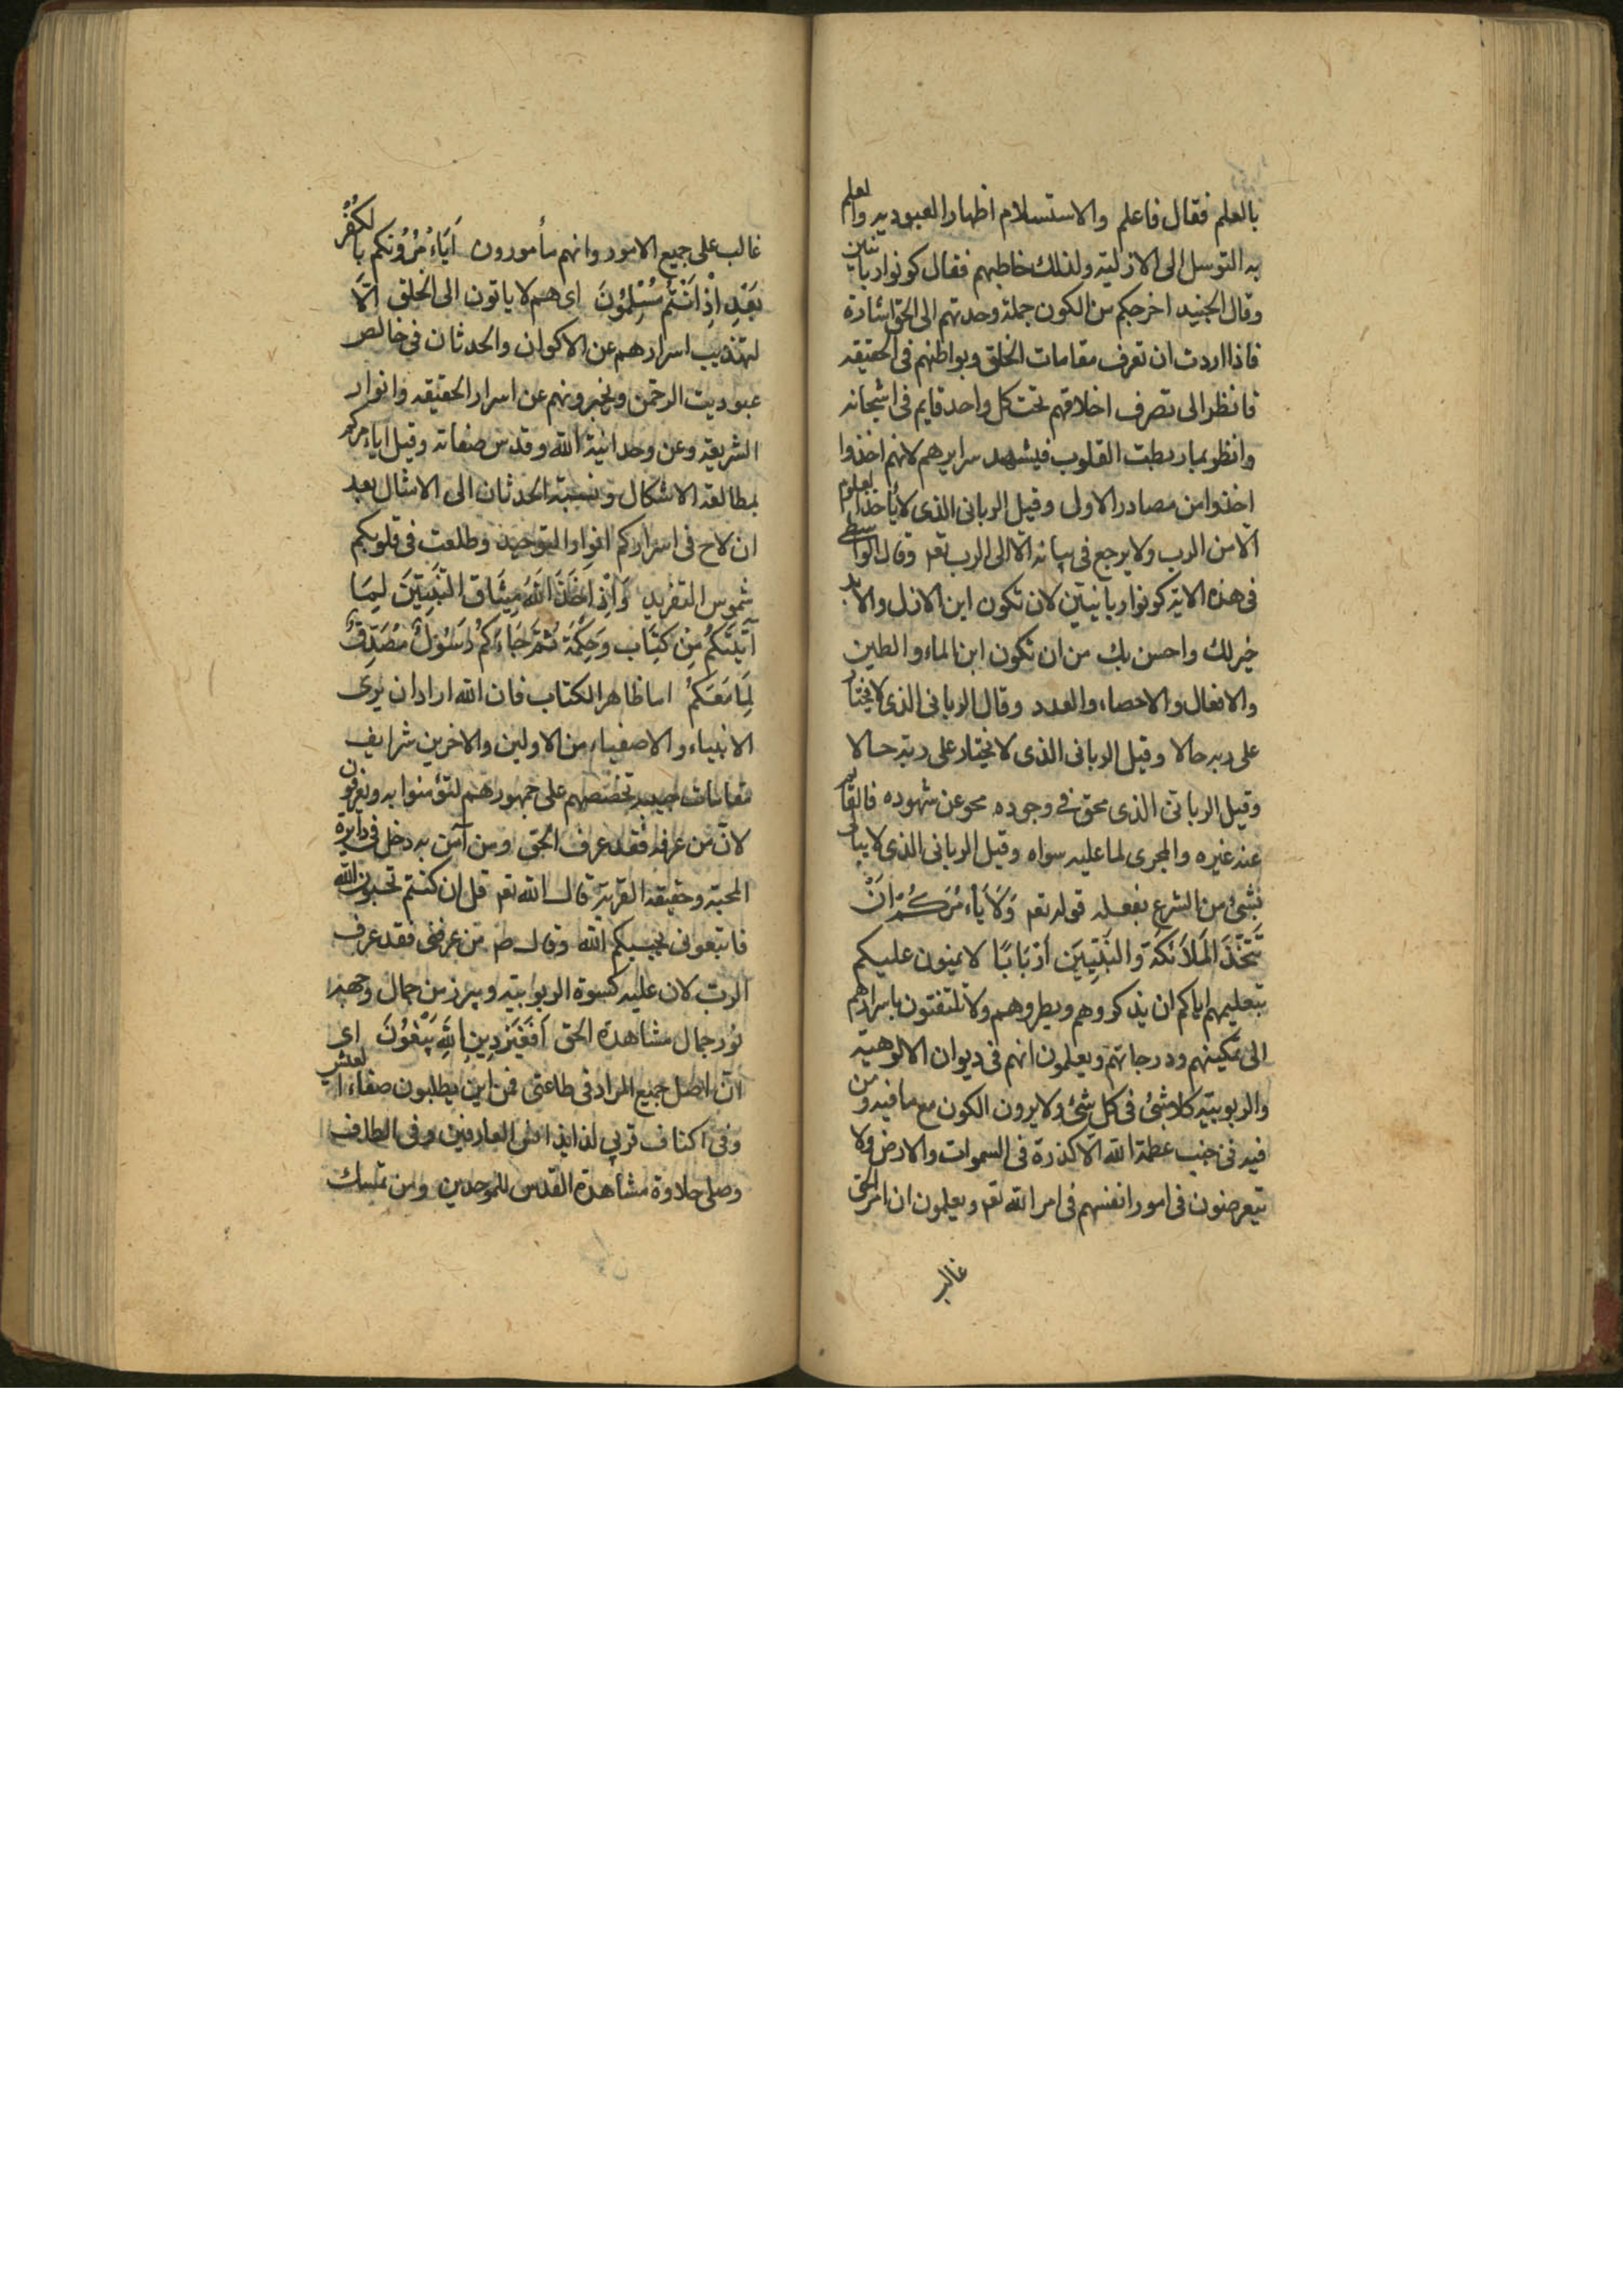 بالعلم فقال فاعلم والاستسلام اظهار العبوديه والعلم
به التوسل الى الازلية ولذلك خاطبهم فقال كونوا ربانيين
وقال الجنيد اخرجكم من الكون جملة وحدتهم الى الحق اشارة
فاذا اردت ان تعرف مقامات الخلق وبواطنهم فى الحقيقه
فانظر الى تصرف اخلاقهم تحت كل واحد قايم فى
وانظر بما ربطت القلوب فيشهد سرايرهم لانهم اخذوا
اخذوا من مصادر الاولى وقيل الربانى الذى لا يأخذ العلوم
الا من الرب ولا يرجع فى بيانه الا الى الرب تعه وقال الواسطى
فى هذه الاية كونوا ربانيين لان تكون ابن الازل والابد
خير لك واحسن بك من ان تكون ابن الماء والطين
والافعال والاحصاء والعدد وقال الربانى الذى لا يختار
على ربه حالا وقيل الربانى الذى لا يختار على ربه حالا
وقيل الربانى الذى محق فى وجوده محو عن شهوده فالقاير
عنه غيره والمجرى لما عليه سواه وقيل الربانى الذى لا يبالى
بشئ من الشرع بفعله قوله تعه وَلَا يَاءْمُرَكُمْ اَنْ
تَتَّخِذَ الْمَلَائِكَةَ وَالنَّبِيِّينَ اَرْبَابًا لا يمنون عليكم
بتعليمهم اياكم ان يذكروهم ويطروهم ولا تلتفتون باسرارهم
الى تمكينهم ودرجاتهم ويعلمون انهم فى ديوان الالوهية
والربوبية كلا شئ فى كل شئ ولا يرون الكون مع ما فيه ومن
فيه فى جنب عظمة الله الا كذرة فى السموات والارض ولا
يتعرضون فى امور انفسهم فى امر الله تعه ويعلمون ان امر الحق
غالب
غالب على جميع الامور وانهم مأمورون اَيَاءْمُرُونَكُم بِالْكُفْرِ
بَعْدِ اِذْ اَنْتُمْ مُسْلِمُونَ اى هم لا ياتون الى الخلق الَّا
لتهذيب اسرارهم عن الاكوان والحدثان فى خالص
عبوديت الرحمن ويخبرونهم عن اسرار الحقيقه وانوار
الشريعه وعن وحدانية الله وقدس صفاته وقيل اياءمركم
بمطالعه الاشكال ونسبة الحدثان الى الامثال بعد
ان لاح فى اسراركم انوار التوحيد وطلعت فى قلوبكم
شموس التفريد وَاِذْ اَخَذَ اللهُ مِيثَاقَ النَّبِيِّينَ لِمَا
آتَيْتُكُمْ مِنْ كِتَابٍ وَحِكْمَةٍ ثُمَّ جَاءَكُمْ رَسُولٌ مُصَدِّقٌ
لِمَا مَعَكُمْ اما ظاهر الكتاب فان الله اراد ان يرى
الانبياء والاصفياء من الاولين والاخرين شرايف
مقامات حبيبه تخصصهم على جمهورهم لتؤمنوا به ويعرفون
لان من عرفه فقد عرف الحق ومن آمن به دخل فى دايرة
المحبة وحقيقه القربة قال الله تعه قل ان كنتم تحبون الله
فاتبعونى يحببكم الله وقال ص من عرفنى فقد عرف
الرب لان عليه كسوة الربوبيته ويبرز من جمال وجهه
نور جمال مشاهدة الحق اَفَغَيْرَ دِينِ اللهِ يَبْغُونَ اى
ان اصل جميع المراد فى طاعتى فمن اين يطلبون صفاء العيش
وفى اكناف قربى لذايذ انس العارفين وفى الطاف
وصلى حلاوة مشاهدة القدس للموحدين ومن تمسك